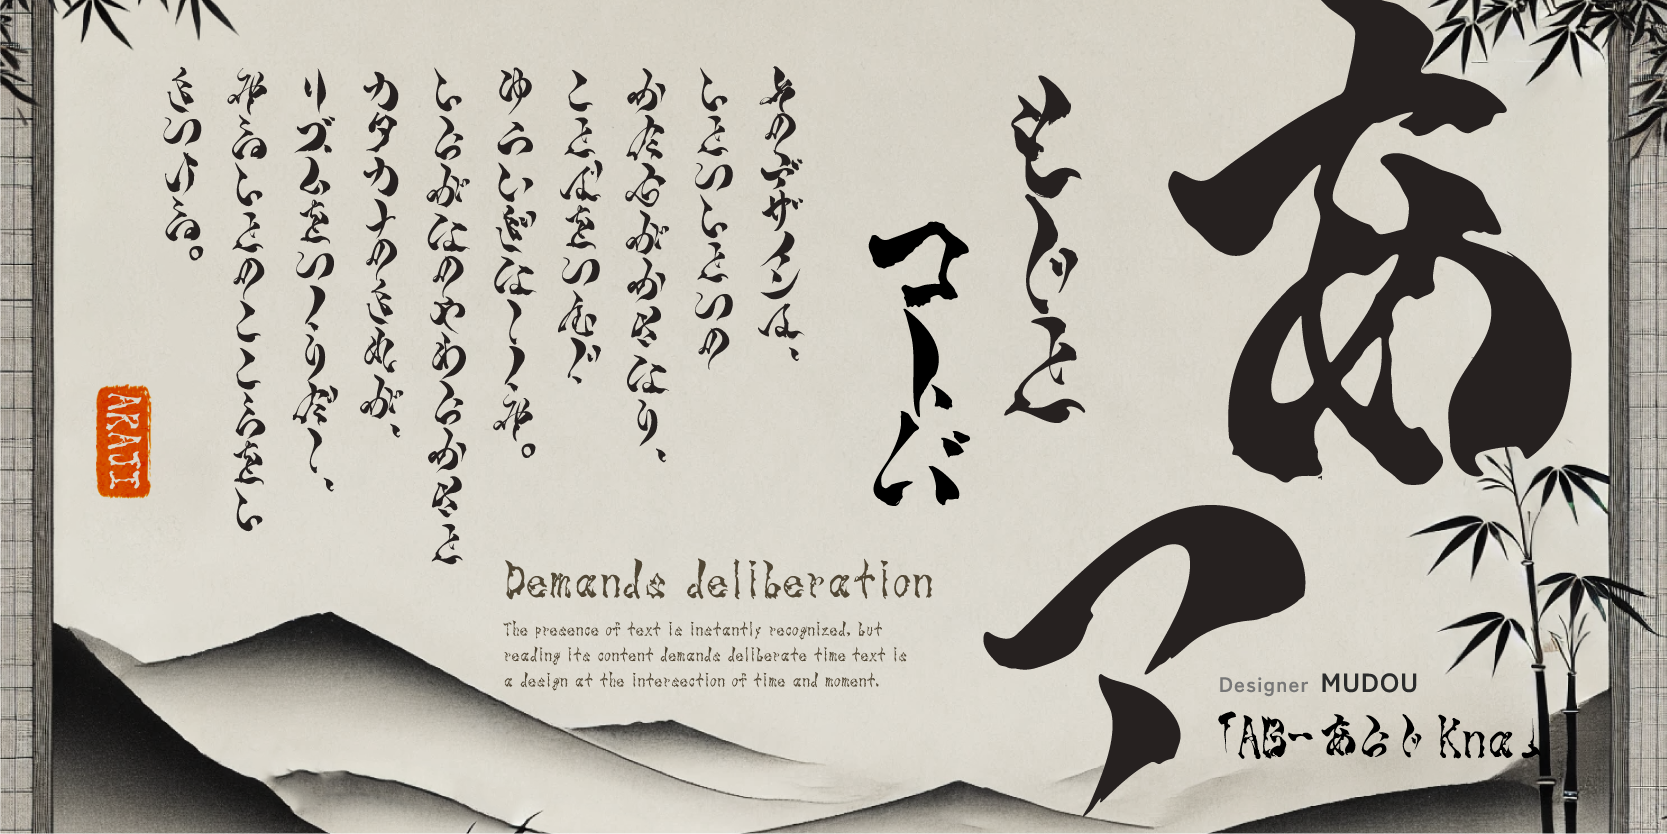 あ
ア
もじと
コトバ
そのデザインは、
ひとつひとつの
かたちがかさなり、
ことばをつむぐ、
しくみ。
ひらがなのやわらかさと
カタカナのきれが、
リズムをつくりだし、
みるひとのこころをひ
きつける。
ARAJI
Demands deliberation
The presence of text is instantly recognized, but
reading its content demands deliberate time text is
a design at the intersection of time and moment.
Designer MUDOU
「TAB-あらじ Kna」